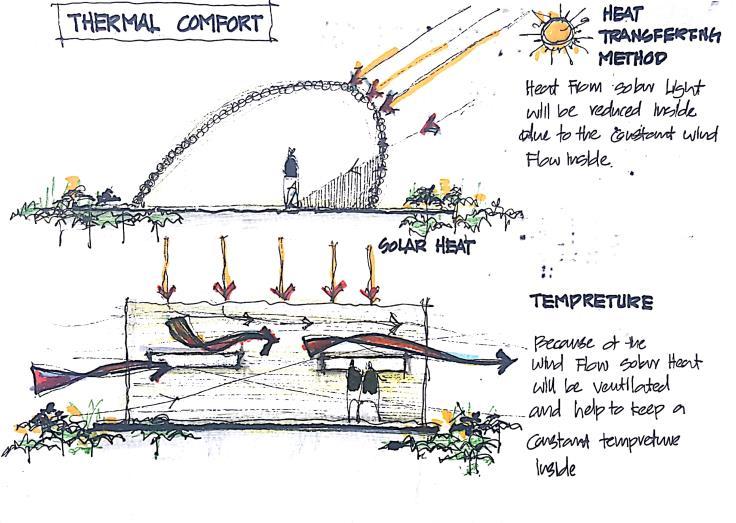 THERMAL COMFORT
HEAT
TRANSFERFING
METHOD
Heat From solar Light
will be reduced inside
due to the Constant wind
Flow inside.
SOLAR HEAT
TEMPRETURE
Because of the
wind Flow solar Heat
will be ventilated
and help to keep a
Constant tempreture
inside